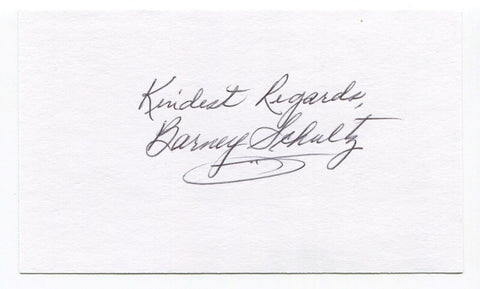 Kindest Regards,
Barney Schultz